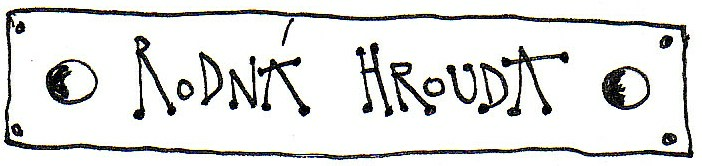 RODNÁ HROUDA